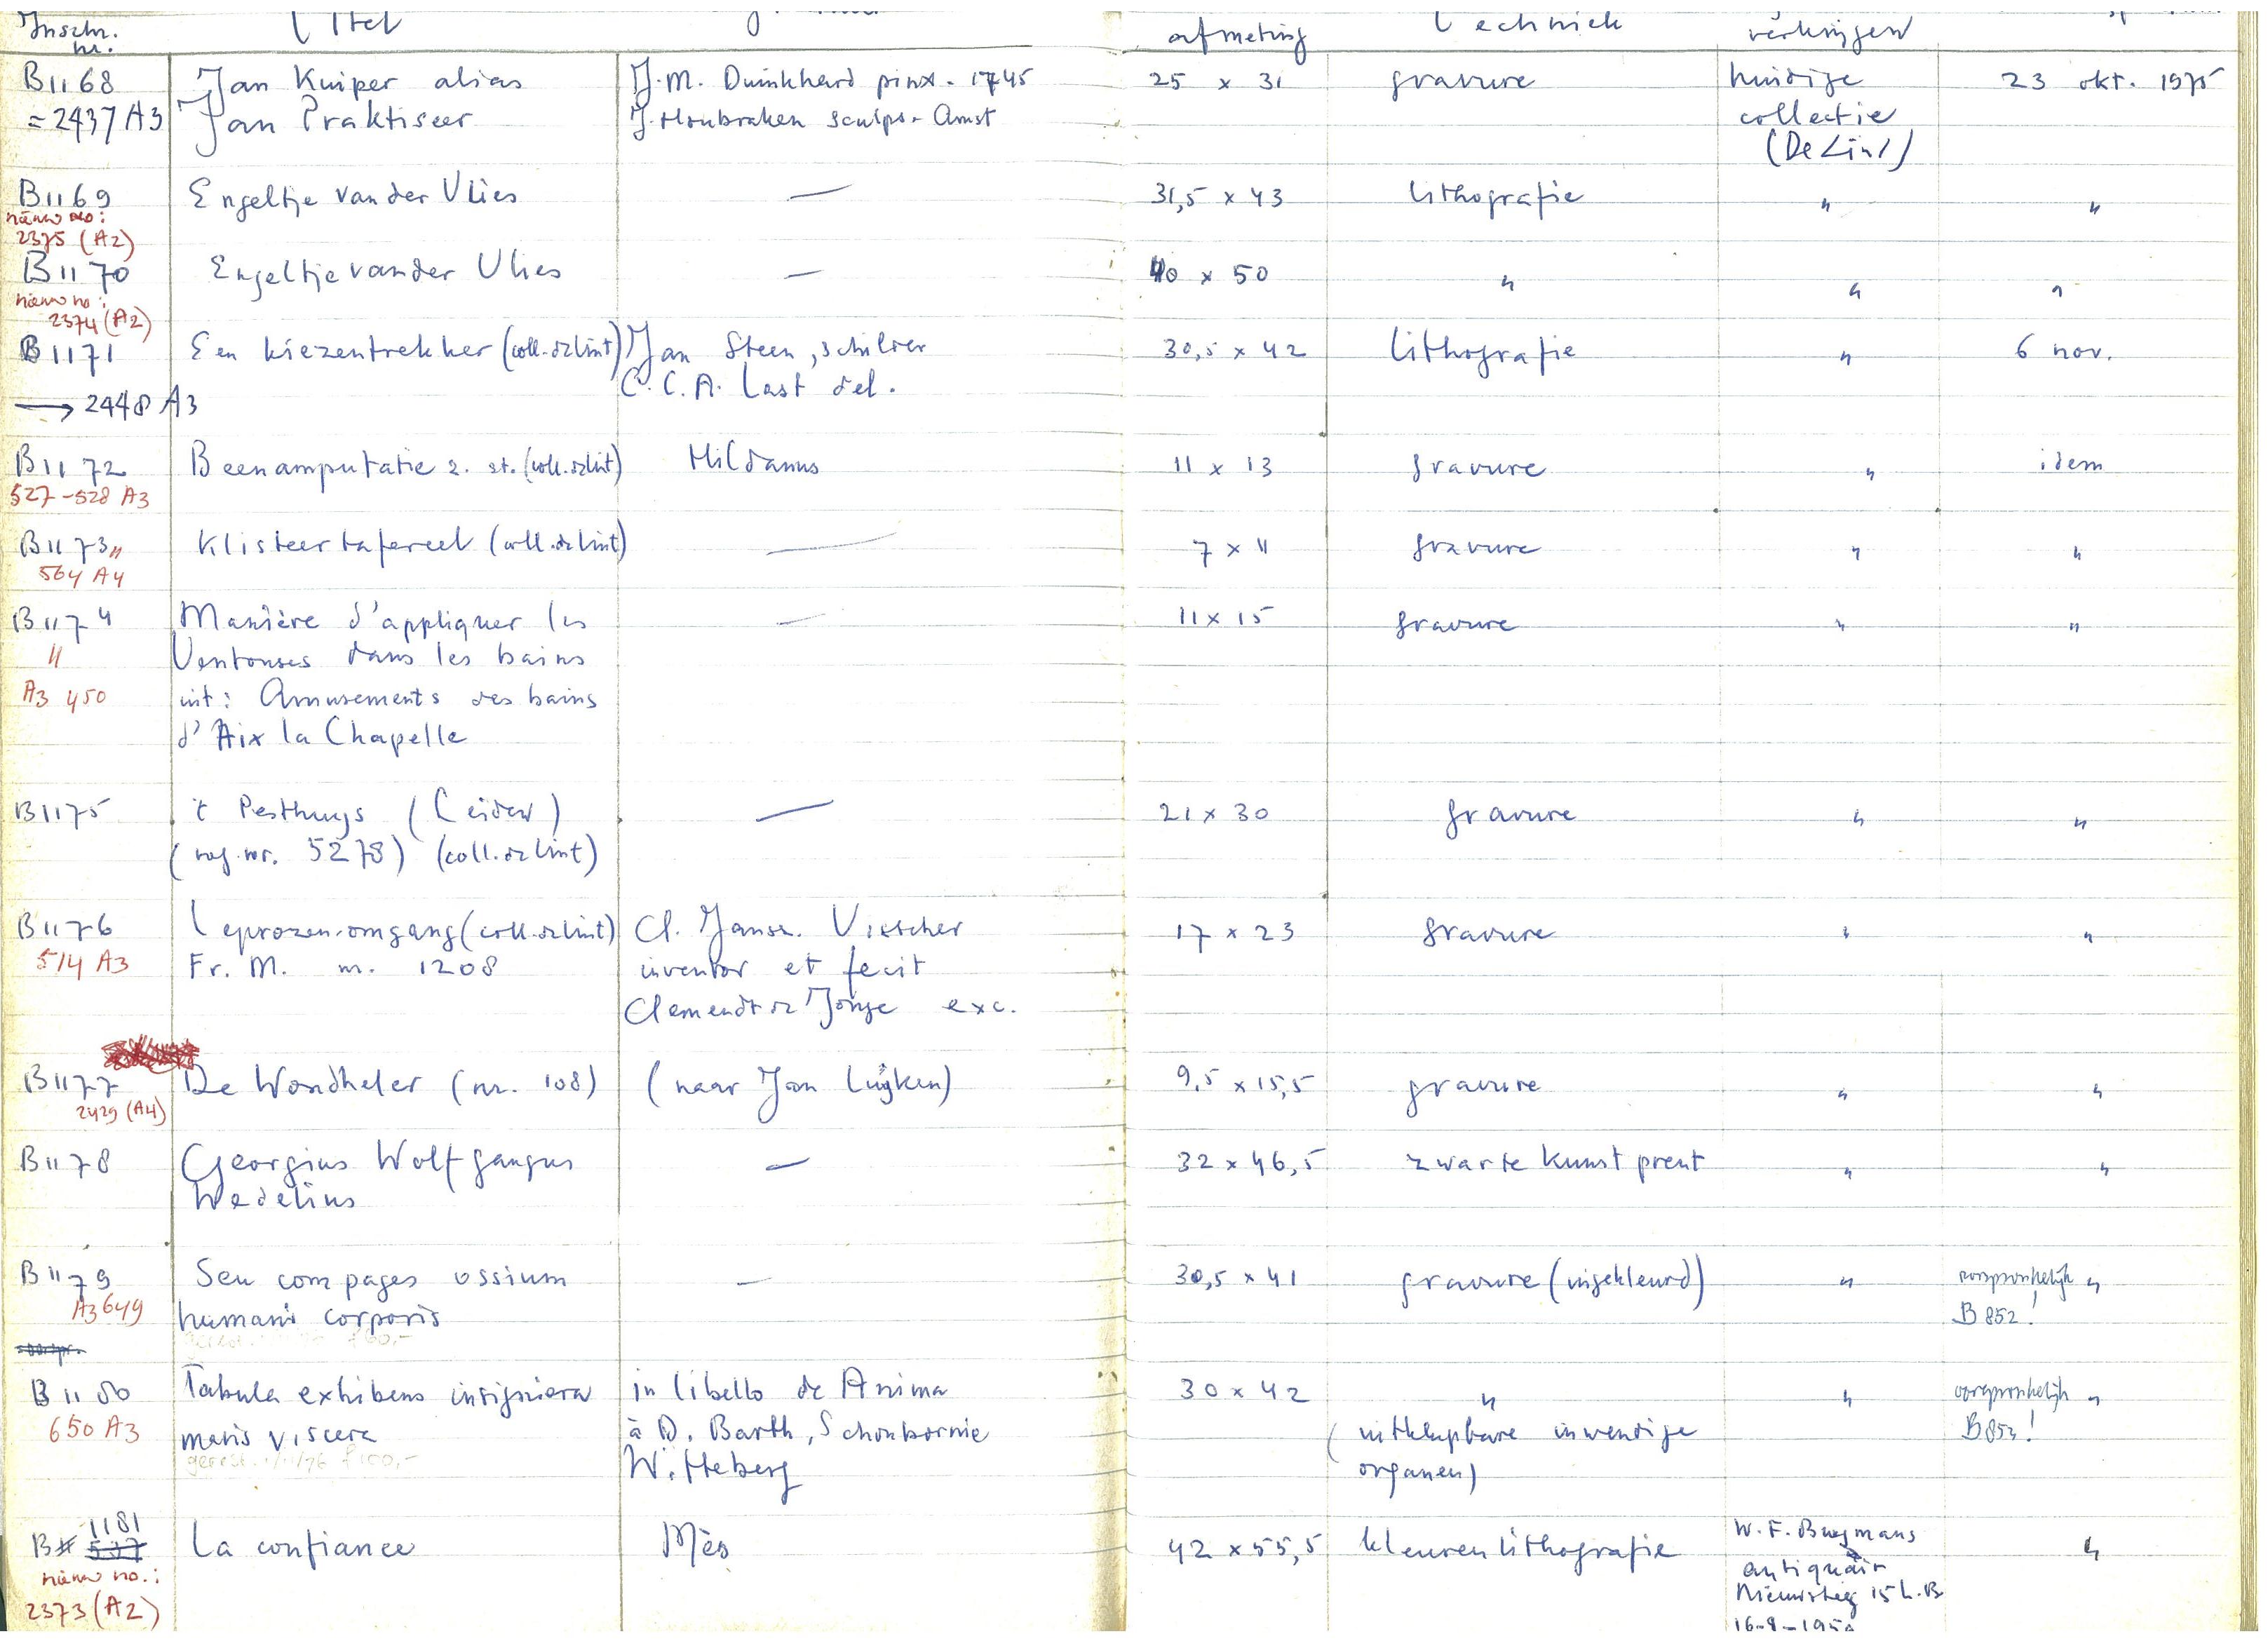 Inschr. nr. Titel afmeting Techniek
B1168 Jan Kuiper alias J.M. Duinkhard pinx. 1745 25 x 31 gravure huidige 23 okt. 1975
= 2437 A3 Jan Praktiseer J. Houbraken sculps. Amst collectie
(De Lint)
B1169 Engeltje van der Vlies — 31,5 x 43 lithografie " "
nieuw no:
2375 (A2)
B1170 Engeltje van der Vlies — 40 x 50 " " "
nieuw no:
2374 (A2)
B1171 Een kiezentrekker (coll. de Lint) Jan Steen, schilder 30,5 x 42 lithografie " 6 nov.
C.C.A. Last del.
→ 2448 A3
B1172 Beenamputatie z. st. (coll. de Lint) Hildanus 11 x 13 gravure " idem
527-528 A3
B1173 " Klisteertafereel (coll. de Lint) — 7 x 11 gravure " "
564 A4
B1174 Manière d'appliquer les — 11 x 15 gravure " "
" Ventouses dans les bains
A3 450 uit: Amusements des bains
d'Aix la Chapelle
B1175 't Pesthuys (Leiden) — 21 x 30 gravure " "
(neg. nr. 5278) (coll. de Lint)
B1176 Leprozenomgang (coll. de Lint) Cl. Jansz. Visscher 17 x 23 gravure " "
514 A3 Fr. M. nr. 1208 inventor et fecit
Clemendt de Jonge exc.
B1177 De Wondheler (nr. 108) (naar Jan Luyken) 9,5 x 15,5 gravure " "
2429 (A4)
B1178 Georgius Wolfgangus — 32 x 46,5 zwarte kunst prent " "
Wedelius
B1179 Seu compages ossium — 30,5 x 41 gravure (ingekleurd) " oorspronkelijk "
A3 649 humani corporis B 852!
B1180 Tabula exhibens insigniora in libello de Anima 30 x 42 " " oorspronkelijk "
650 A3 maris viscera à D. Barth, Schonbornie (uitklapbare inwendige B853!
gerest. Witteberg organen)
1181
B 537 La confiance Mès 42 x 55,5 kleurenlithografie W.F. Brugmans "
nieuw no.: antiquair
2373 (A2) Nieuwsteeg 15 L.B